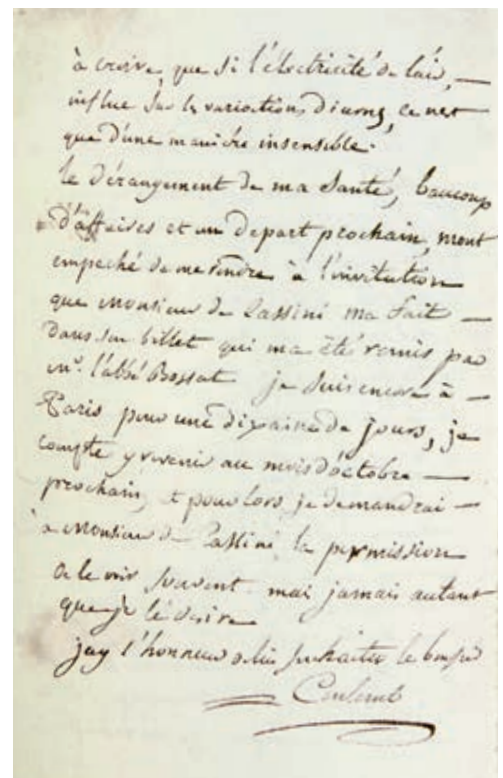 à croire, que si l'électricité de l'air, —
influe sur les variations diurnes, ce nest
que d'une manière insensible.
le dérangement de ma santé, baucoup
d'affaires et un depart prochain, mont
empeché de me rendre à l'invitation
que Monsieur de Cassini ma fait —
dans son billet qui ma été remis par
mr. l'abbé Bossat je suis encore à —
Paris pour une dixaine de jours, je
compte y revenir au mois d'octobre —
prochain, et pour lors, je demandrai —
à Monsieur de Cassini la permission
de le voir souvent mai jamais autant
que je le désire
jay l'honneur de lui souhaiter le bonjour
Coulomb